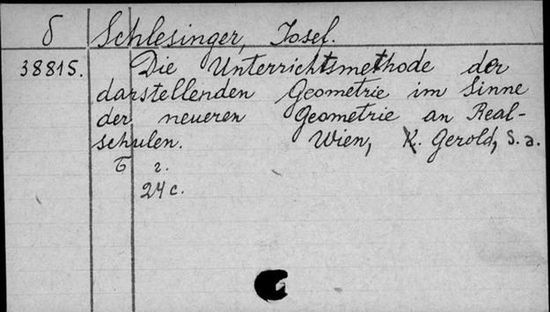 б Schlesinger, Josef.
38815. Die Unterrichtsmethode der
darstellenden Geometrie im Sinne
der neueren Geometrie an Real-
schulen. Wien, K. Gerold, s. a.
Б г.
24 с.